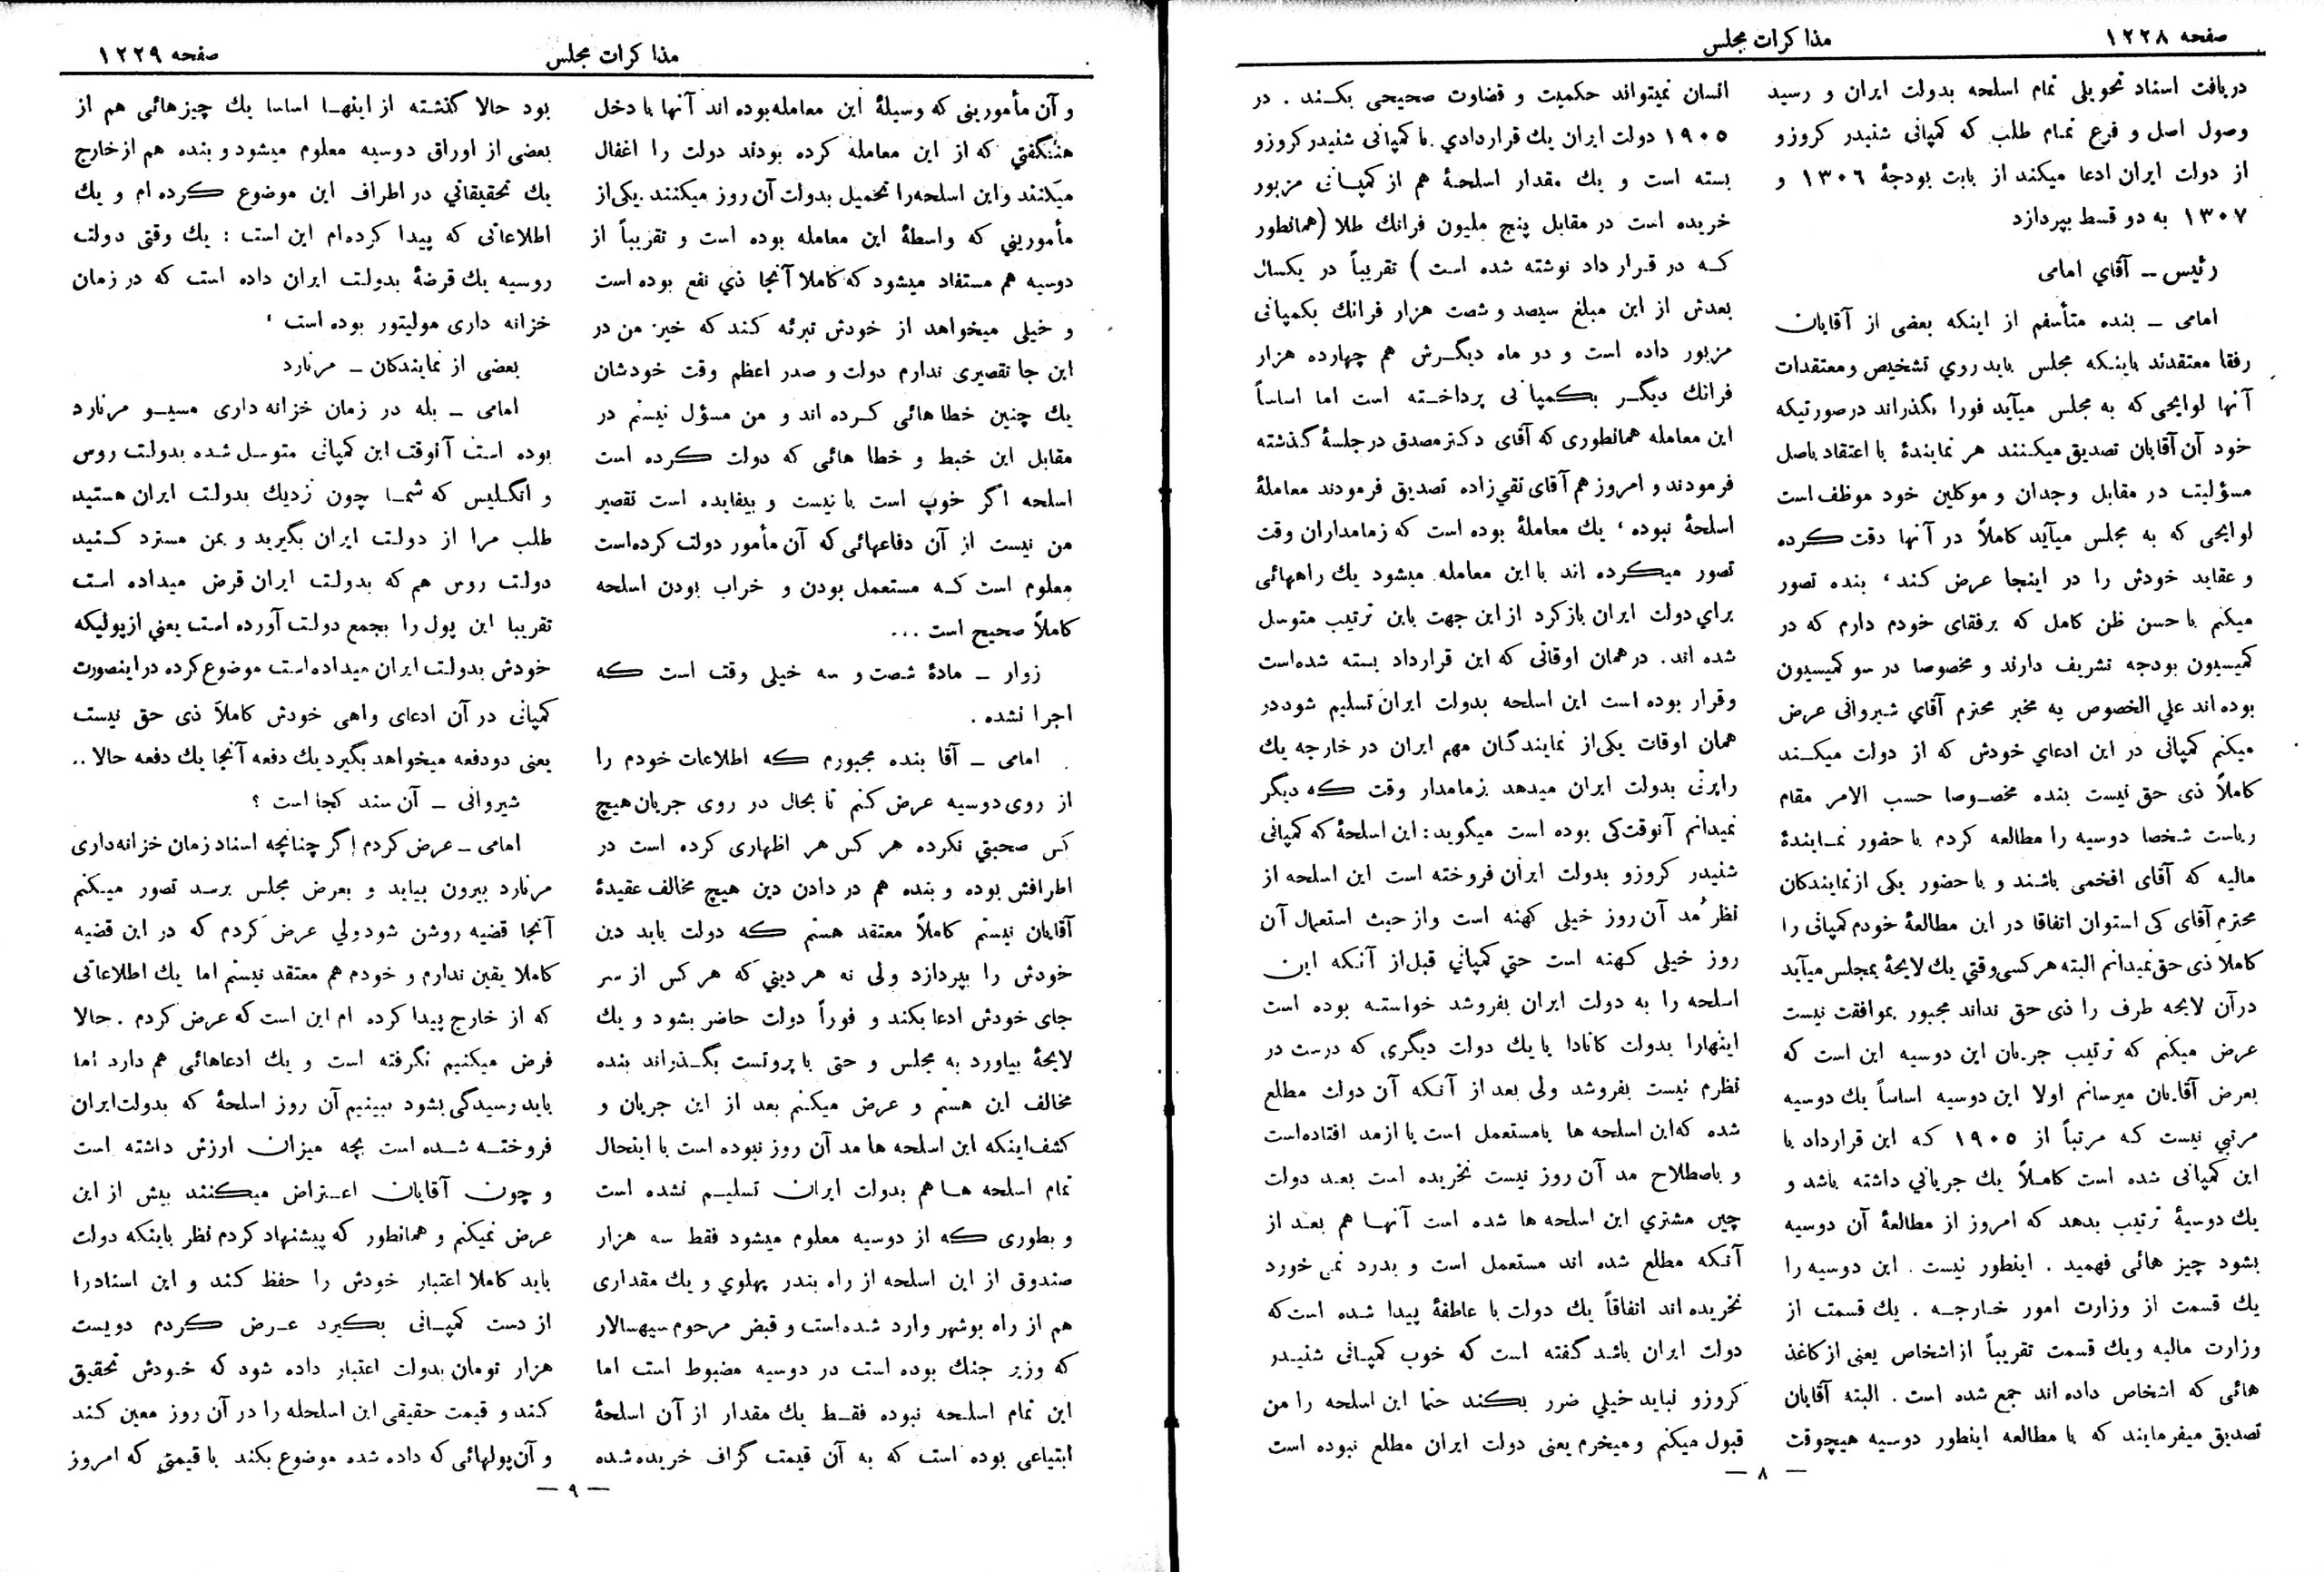 صفحه ۱۲۲۸
مذاکرات مجلس
دریافت اسناد تحویلی تمام اسلحه بدولت ایران و رسید
وصول اصل و فرع تمام طلب که کمپانی شنیدر کروزو
از دولت ایران ادعا میکند از بابت بودجهٔ ۱۳۰۶ و
۱۳۰۷ به دو قسط بپردازد
رئیس ــ آقای امامی
امامی ــ بنده متأسفم از اینکه بعضی از آقایان
رفقا معتقدند باینکه مجلس باید روي تشخیص و معتقدات
آنها لوایحی که به مجلس میآید فورا بگذراند درصورتیکه
خود آن آقایان تصدیق میکنند هر نمایندهٔ با اعتقاد باصل
مسؤلیت در مقابل وجدان و موکلین خود موظف است
لوایحی که به مجلس میآید کاملاً در آنها دقت کرده
و عقاید خودش را در اینجا عرض کند ، بنده تصور
میکنم با حسن ظن کامل که برفقای خودم دارم که در
کمیسیون بودجه تشریف دارند و مخصوصا در سو کمیسیون
بوده اند علي الخصوص یه مخبر محترم آقاي شیروانی عرض
میکنم کمپانی در این ادعاي خودش که از دولت میکند
کاملاً ذی حق نیست بنده مخصوصا حسب الامر مقام
ریاست شخصا دوسیه را مطالعه کردم با حضور نمایندهٔ
مالیه که آقای افخمی باشند و با حضور یکی از نمایندکان
محترم آقای کی استوان اتفاقا در این مطالعهٔ خودم کمپانی را
کاملاً ذی حق نمیدانم البته هر کسی وقتي یك لایحهٔ بمجلس میآید
درآن لایحه طرف را ذی حق نداند مجبور بموافقت نیست
عرض میکنم که ترتیب جریان این دوسیه این است که
بعرض آقایان میرسانم اولا این دوسیه اساساً یك دوسیه
مرتبي نیست که مرتباً از ۱۹۰۵ که این قرارداد با
این کمپانی شده است کاملاً یك جریاني داشته باشد و
یك دوسیهٔ ترتیب بدهد که امروز از مطالعهٔ آن دوسیه
بشود چیز هائی فهمید . اینطور نیست . این دوسیه را
یك قسمت از وزارت امور خارجه . یك قسمت از
وزارت مالیه ویك قسمت تقریباً از اشخاص یعنی از کاغذ
هائی که اشخاص داده اند جمع شده است . البته آقایان
تصدیق میفرمایند که با مطالعه اینطور دوسیه هیچوقت
انسان نمیتواند حکمیت و قضاوت صحیحی بکند . در
۱۹۰۵ دولت ایران یك قراردادي با کمپانی شنیدر کروزو
بسته است و یك مقدار اسلحهٔ هم از کمپانی مزبور
خریده است در مقابل پنج ملیون فرانك طلا (همانطور
که در قرار داد نوشته شده است ) تقریباً در یکسال
بعدش از این مبلغ سیصد و شصت هزار فرانك بکمپانی
مزبور داده است و دو ماه دیگرش هم چهارده هزار
فرانك دیگر بکمپانی پرداخته است اما اساساً
این معامله همانطوری که آقای دکتر مصدق در جلسهٔ گذشته
فرمودند و امروز هم آقای تقي زاده تصدیق فرمودند معاملهٔ
اسلحهٔ نبوده ، یك معاملهٔ بوده است که زمامداران وقت
تصور میکرده اند با این معامله میشود یك راههائی
براي دولت ایران باز کرد از این جهت باین ترتیب متوسل
شده اند . در همان اوقاتی که این قرارداد بسته شده است
وقرار بوده است این اسلحه بدولت ایران تسلیم شود در
همان اوقات یکی از نمایندگان مهم ایران در خارجه یك
راپرتی بدولت ایران میدهد بزمامدار وقت که دیگر
نمیدانم آنوقت کی بوده است میگوید : این اسلحهٔ که کمپانی
شنیدر کروزو بدولت ایران فروخته است این اسلحه از
نظر مُد آن روز خیلی کهنه است و از حیث استعمال آن
روز خیلی کهنه است حتي کمپاني قبل از آنکه این
اسلحه را به دولت ایران بفروشد خواسته بوده است
اینهارا بدولت کانادا یا یك دولت دیگری که درست در
نظرم نیست بفروشد ولی بعد از آنکه آن دولت مطلع
شده که این اسلحه ها یا مستعمل است یا از مد افتاده است
و باصطلاح مد آن روز نیست نخریده است بعد دولت
چین مشتري این اسلحه ها شده است آنها هم بعد از
آنکه مطلع شده اند مستعمل است و بدرد نمی خورد
نخریده اند اتفاقاً یك دولت با عاطفهٔ پیدا شده است که
دولت ایران باشد گفته است که خوب کمپانی شنیدر
کروزو نباید خیلي ضرر بکند حتما این اسلحه را من
قبول میکنم و میخرم یعنی دولت ایران مطلع نبوده است
— ۸ —
مذاکرات مجلس
صفحه ۱۲۲۹
و آن مأمورینی که وسیلهٔ این معامله بوده اند آنها با دخل
هنگفتي که از این معامله کرده بودند دولت را اغفال
میکنند و این اسلحه را تحمیل بدولت آن روز میکنند یکی از
مأموریني که واسطهٔ این معامله بوده است و تقریباً از
دوسیه هم مستفاد میشود که کاملا آنجا ذي نفع بوده است
و خیلی میخواهد از خودش تبرئه کند که خیر من در
این جا تقصیری ندارم دولت و صدر اعظم وقت خودشان
یك چنین خطا هائی کرده اند و من مسؤل نیستم در
مقابل این خبط و خطا هائی که دولت کرده است
اسلحه اگر خوب است یا نیست و بیفایده است تقصیر
من نیست از آن دفاعهائی که آن مأمور دولت کرده است
معلوم است که مستعمل بودن و خراب بودن اسلحه
کاملاً صحیح است ...
زوار ــ مادهٔ شصت و سه خیلی وقت است که
اجرا نشده .
امامی ــ آقا بنده مجبورم که اطلاعات خودم را
از روی دوسیه عرض کنم تا بحال در روی جریان هیچ
کس صحبتي نکرده هر کس هر اظهاری کرده است در
اطرافش بوده و بنده هم در دادن دین هیچ مخالف عقیدهٔ
آقایان نیستم کاملاً معتقد هستم که دولت باید دین
خودش را بپردازد ولی نه هر دیني که هر کس از سر
جای خودش ادعا بکند و فوراً دولت حاضر بشود و یك
لایحهٔ بیاورد به مجلس و حتی با پروتست بگذراند بنده
مخالف این هستم و عرض میکنم بعد از این جریان و
کشف اینکه این اسلحه ها مد آن روز نبوده است با اینحال
تمام اسلحه ها هم بدولت ایران تسلیم نشده است
و بطوری که از دوسیه معلوم میشود فقط سه هزار
صندوق از این اسلحه از راه بندر پهلوي و یك مقداری
هم از راه بوشهر وارد شده است و قبض مرحوم سپهسالار
که وزیر جنك بوده است در دوسیه مضبوط است اما
این تمام اسلحه نبوده فقط یك مقدار از آن اسلحهٔ
ابتیاعی بوده است که به آن قیمت گزاف خریده شده
بود حالا گذشته از اینها اساسا یك چیز هائی هم از
بعضی از اوراق دوسیه معلوم میشود و بنده هم از خارج
یك تحقیقاتي در اطراف این موضوع کرده ام و یك
اطلاعاتی که پیدا کرده ام این است : یك وقتی دولت
روسیه یك قرضهٔ بدولت ایران داده است که در زمان
خزانه داری مولیتور بوده است ،
بعضی از نمایندکان ــ مرنارد
امامی ــ بله در زمان خزانه داری مسیو مرنارد
بوده است آنوقت این کمپانی متوسل شده بدولت روس
و انگلیس که شما چون نزدیك بدولت ایران هستید
طلب مرا از دولت ایران بگیرید و بمن مسترد کنید
دولت روس هم که بدولت ایران قرض میداده است
تقریبا این پول را بجمع دولت آورده است یعني از پولیکه
خودش بدولت ایران میداده است موضوع کرده در اینصورت
کمپانی در آن ادعای واهی خودش کاملاً ذی حق نیست
یعنی دودفعه میخواهد بگیرد یك دفعه آنجا یك دفعه حالا ..
شیروانی ــ آن سند کجا است ؟
امامی ــ عرض کردم اگر چنانچه اسناد زمان خزانه داری
مرنارد بیرون بیاید و بعرض مجلس برسد تصور میکنم
آنجا قضیه روشن شود ولي عرض کردم که در این قضیه
کاملا یقین ندارم و خودم هم معتقد نیستم اما یك اطلاعاتی
که از خارج پیدا کرده ام این است که عرض کردم . حالا
فرض میکنیم نگرفته است و یك ادعاهائی هم دارد اما
باید رسیدگی بشود ببینیم آن روز اسلحهٔ که بدولت ایران
فروخته شده است بچه میزان ارزش داشته است
و چون آقایان اعتراض میکنند بیش از این
عرض نمیکنم و همانطور که پیشنهاد کردم نظر باینکه دولت
باید کاملا اعتبار خودش را حفظ کند و این اسناد را
از دست کمپانی بگیرد عرض کردم دویست
هزار تومان بدولت اعتبار داده شود که خودش تحقیق
کند و قیمت حقیقی این اسلحله را در آن روز معین کند
و آن پولهائی که داده شده موضوع بکند با قیمتی که امروز
— ۹ —